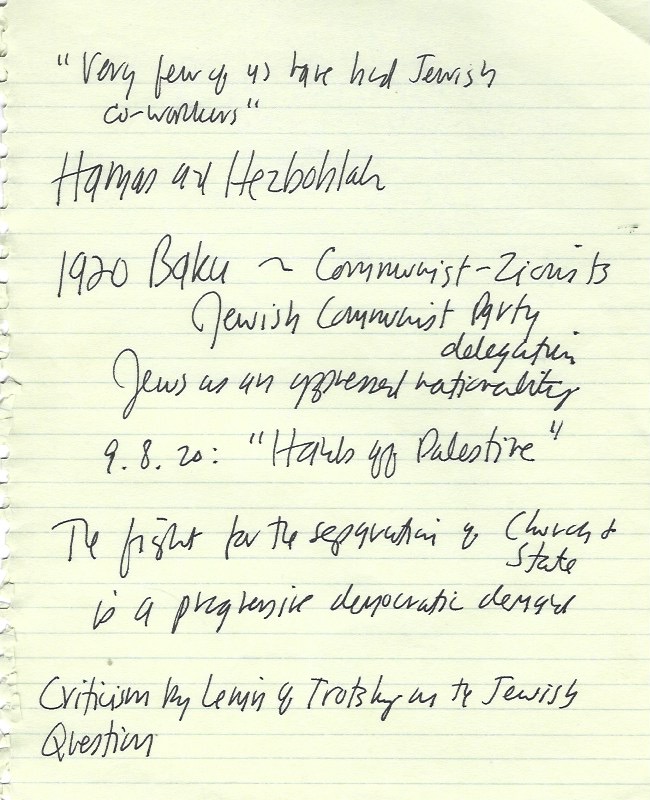 "Very few of us have had Jewish
co-workers"
Hamas and Hezbohlah
1920 Baku ~ Communist-Zionists
Jewish Communist Party
delegation
Jews as an oppressed nationality
9.8.20: "Hands off Palestine"
The fight for the separation of Church &
State
is a progressive democratic demand
Criticism by Lenin of Trotsky on the Jewish
Question